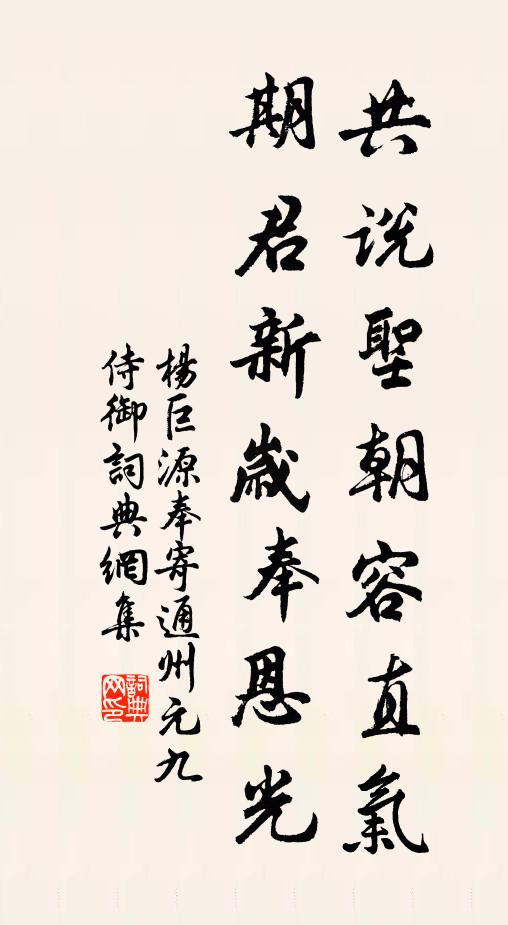 共说聖朝容直氣
期君新歲奉恩光
楊巨源奉寄通州元九
侍御詞典網集
詞典網印